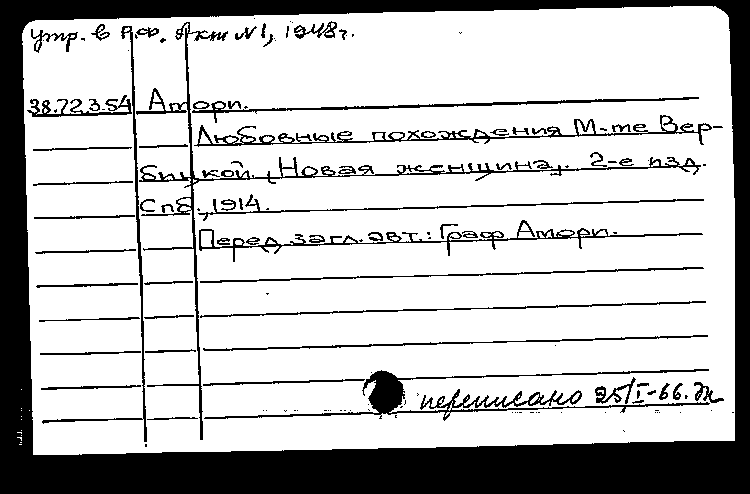 утр. в РФ. Акт №1, 1948г.
38.72.3.54 Амори.
Любовные похождения М-me Вер-
бицкой „Новая женщина„. 2-е изд.
Спб., 1914.
Перед загл. авт.: Граф Амори.
переписано 25/I-66.